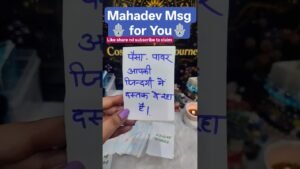 Mahadev Msg
for You
Like share nd subscribe to claim
Cos
urney
पैसा - पावर
आपकी
ज़िन्दगी में
दस्तक दे रहा
है।